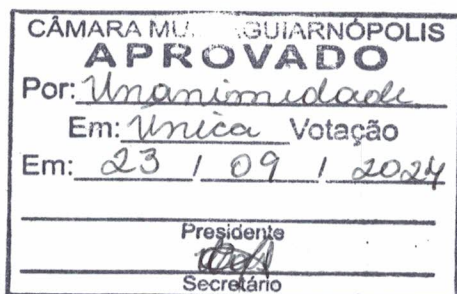 CÂMARA MU GUIARNÓPOLIS
APROVADO
Por: Unanimidade
Em: Única Votação
Em: 23 / 09 / 2024
Presidente
Secretário